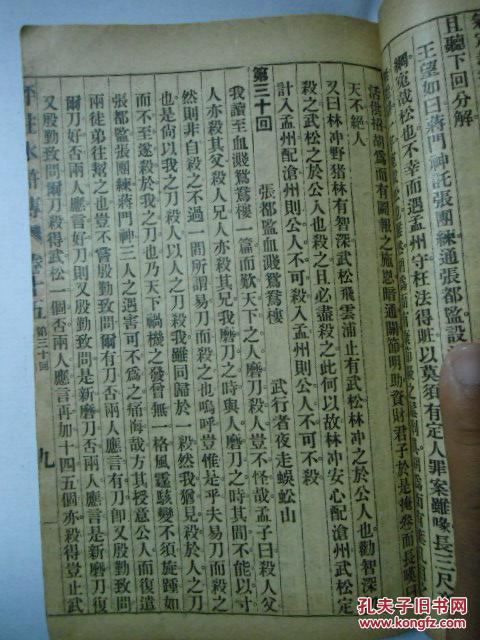 且聽下回分解
王望如曰蔣門神託張團練通張都監設
網寃哉松也不幸而遇孟州守枉法得賍以莫須有定人罪案雖喙長三尺
話 為而有圖報之施恩暗通關節明助資財君子於是掩卷而長嘆
天不絕人
又曰林冲野猪林有智深武松飛雲浦止有武松林冲之於公人也勸智深
殺之武松之於公人也殺之且必盡殺之此何以故林冲安心配滄州武松定
計入孟州配滄州則公人不可殺入孟州則公人不可不殺
第三十回
張都監血濺鴛鴦樓 武行者夜走蜈蚣山
我讀至血濺鴛鴦樓一篇而歎天下之人磨刀殺人豈不怪哉孟子曰殺人父
人亦殺其父殺人兄人亦殺其兄我磨刀之時與人磨刀之時其間不能以寸
然則非自殺之不過一間所謂易刀而殺之也嗚呼豈惟是乎夫易刀而殺之
也是尚以我之刀殺人以人之刀殺我雖同歸於一殺然我猶見殺於人之刀
而不至遂殺於我之刀也乃天下禍機之發曾無一格風霆駭變不須旋踵如
張都監張團練蔣門神三人之遇害可不為之痛悔哉方其授意公人而復遣
兩徒弟往幫之也豈不嘗殷勤致問爾有刀否兩人應言有刀卽又殷勤致問
爾刀好否兩人應言好刀則又殷勤致問是新磨刀否兩人應言是新磨刀復
又殷勤致問爾刀殺得武松一個否兩人應言再加十四五個亦殺得豈止武
評註水滸傳 卷十五 第三十回 九
孔夫子旧书网